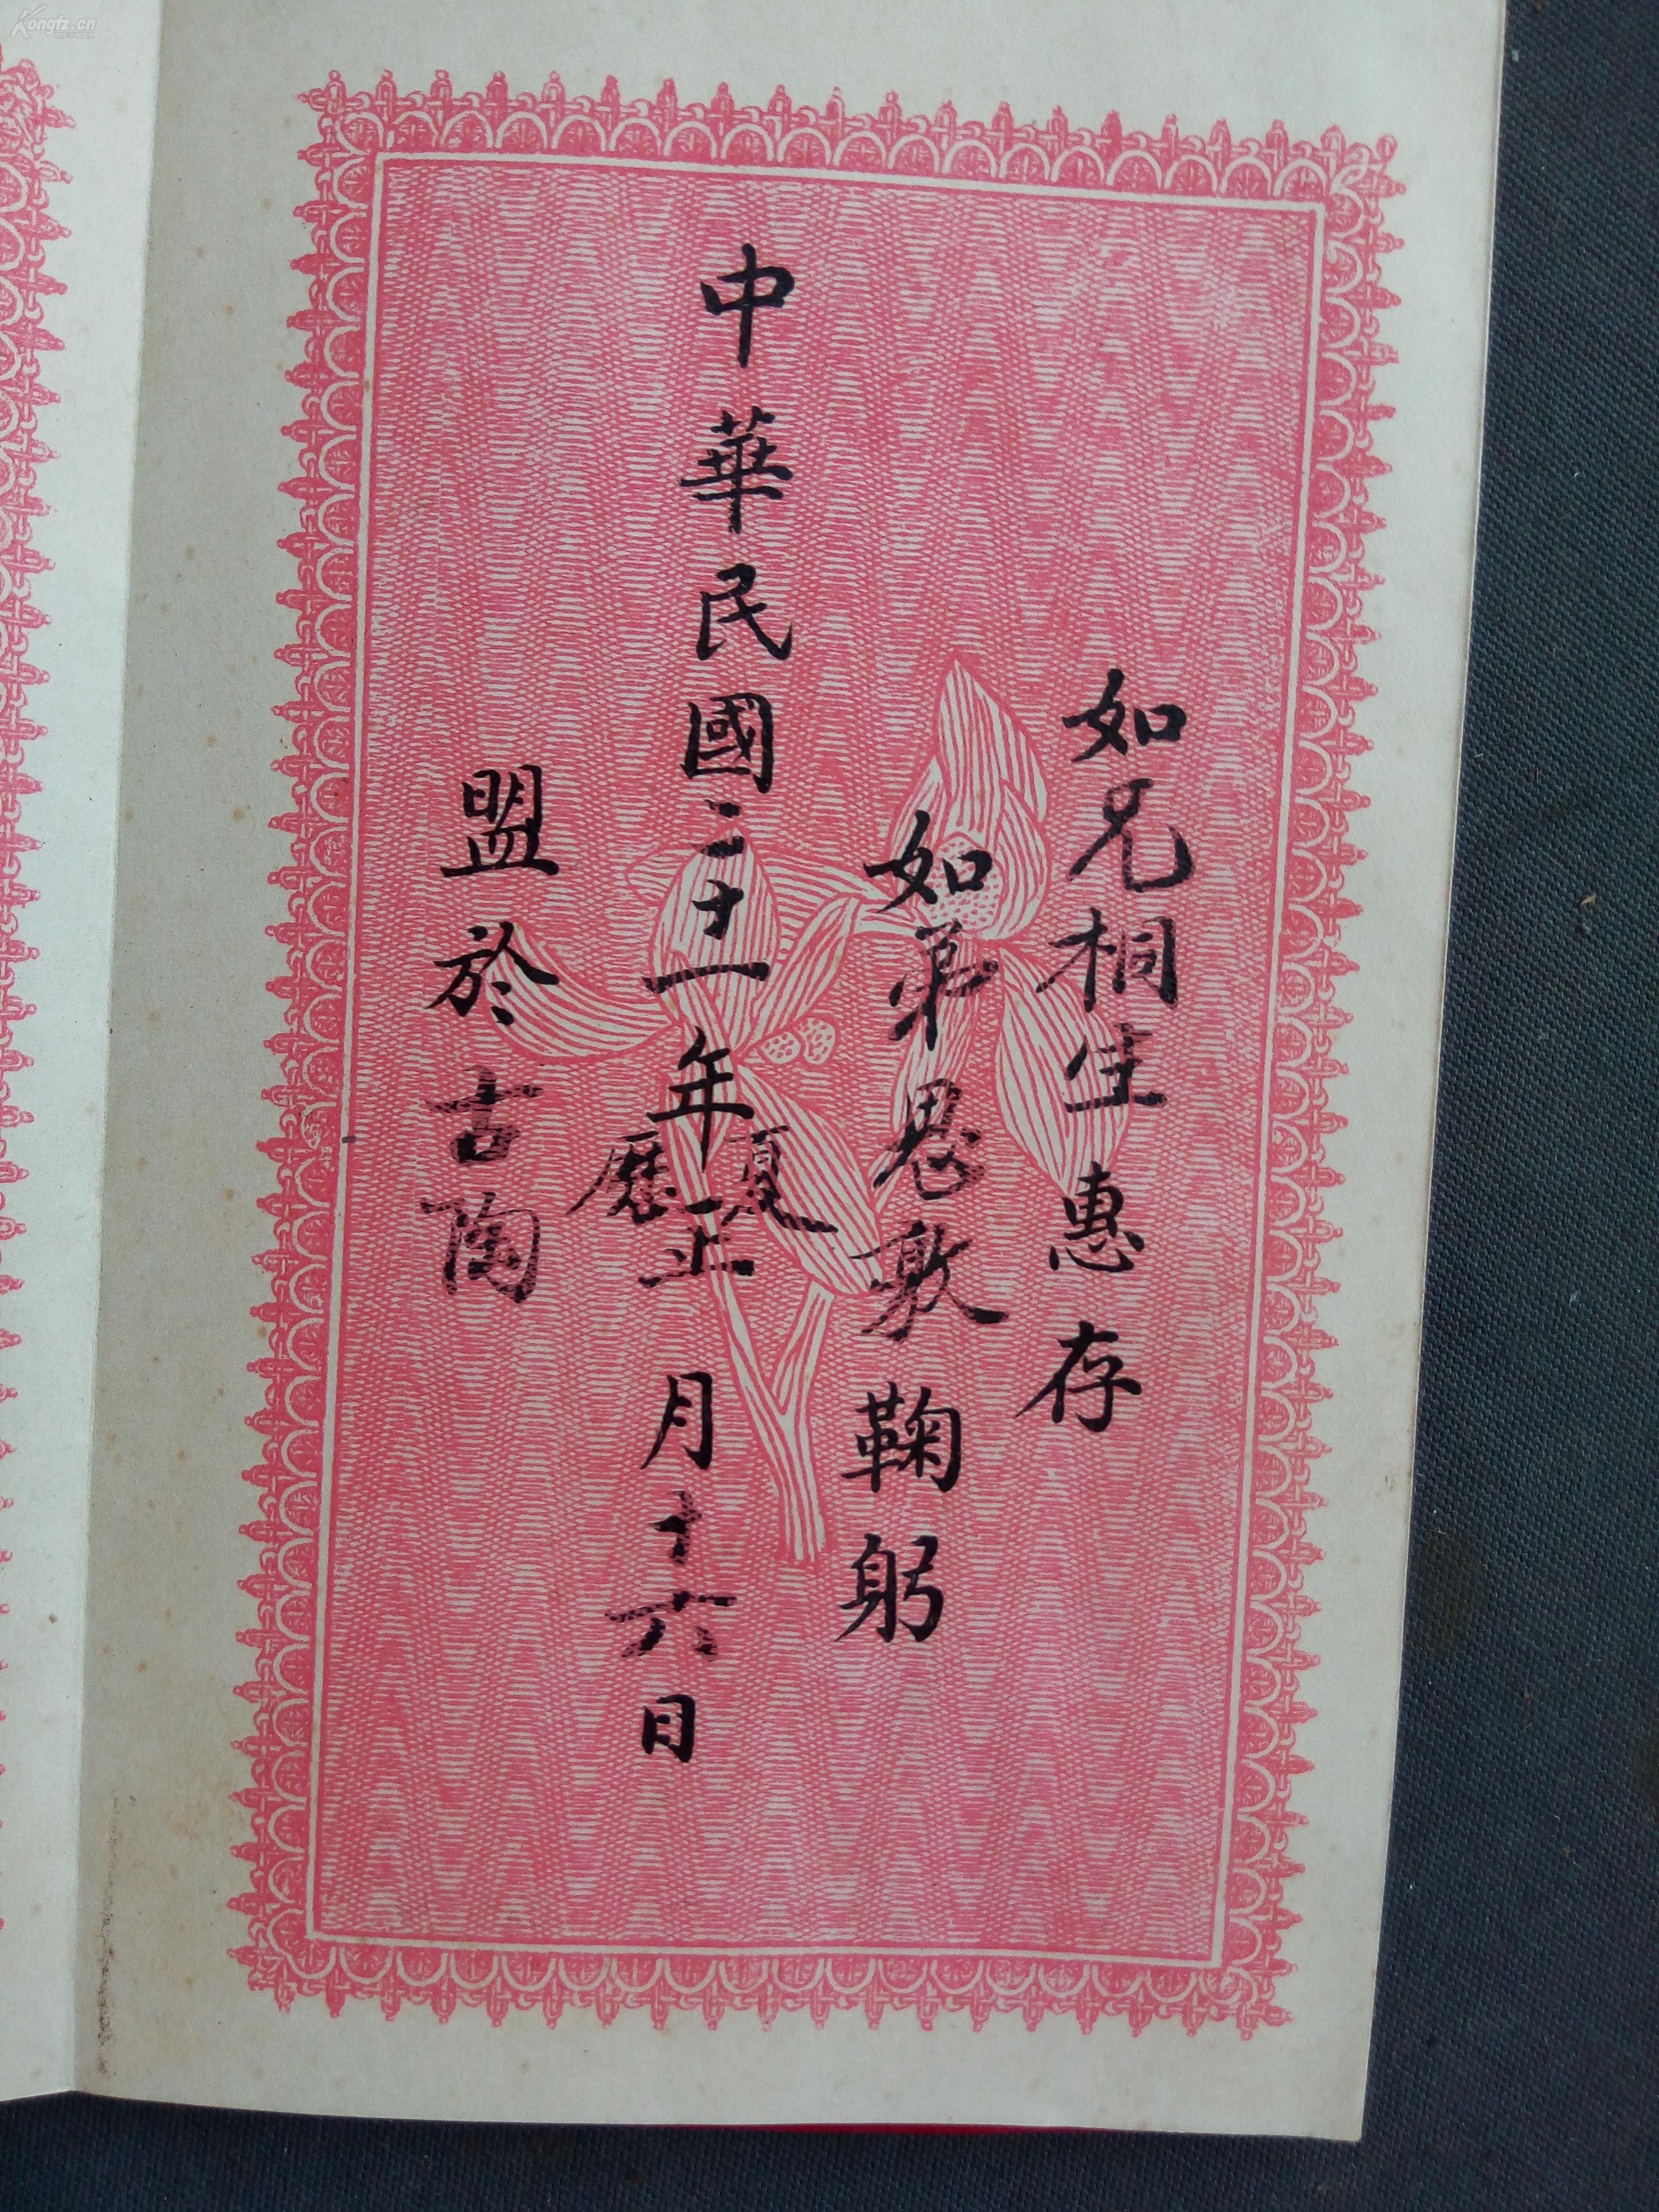 如兄桐生惠存
如弟思敦鞠躬
中華民國二十一年夏歷正月十六日
盟於古陶
Kongfz.cn